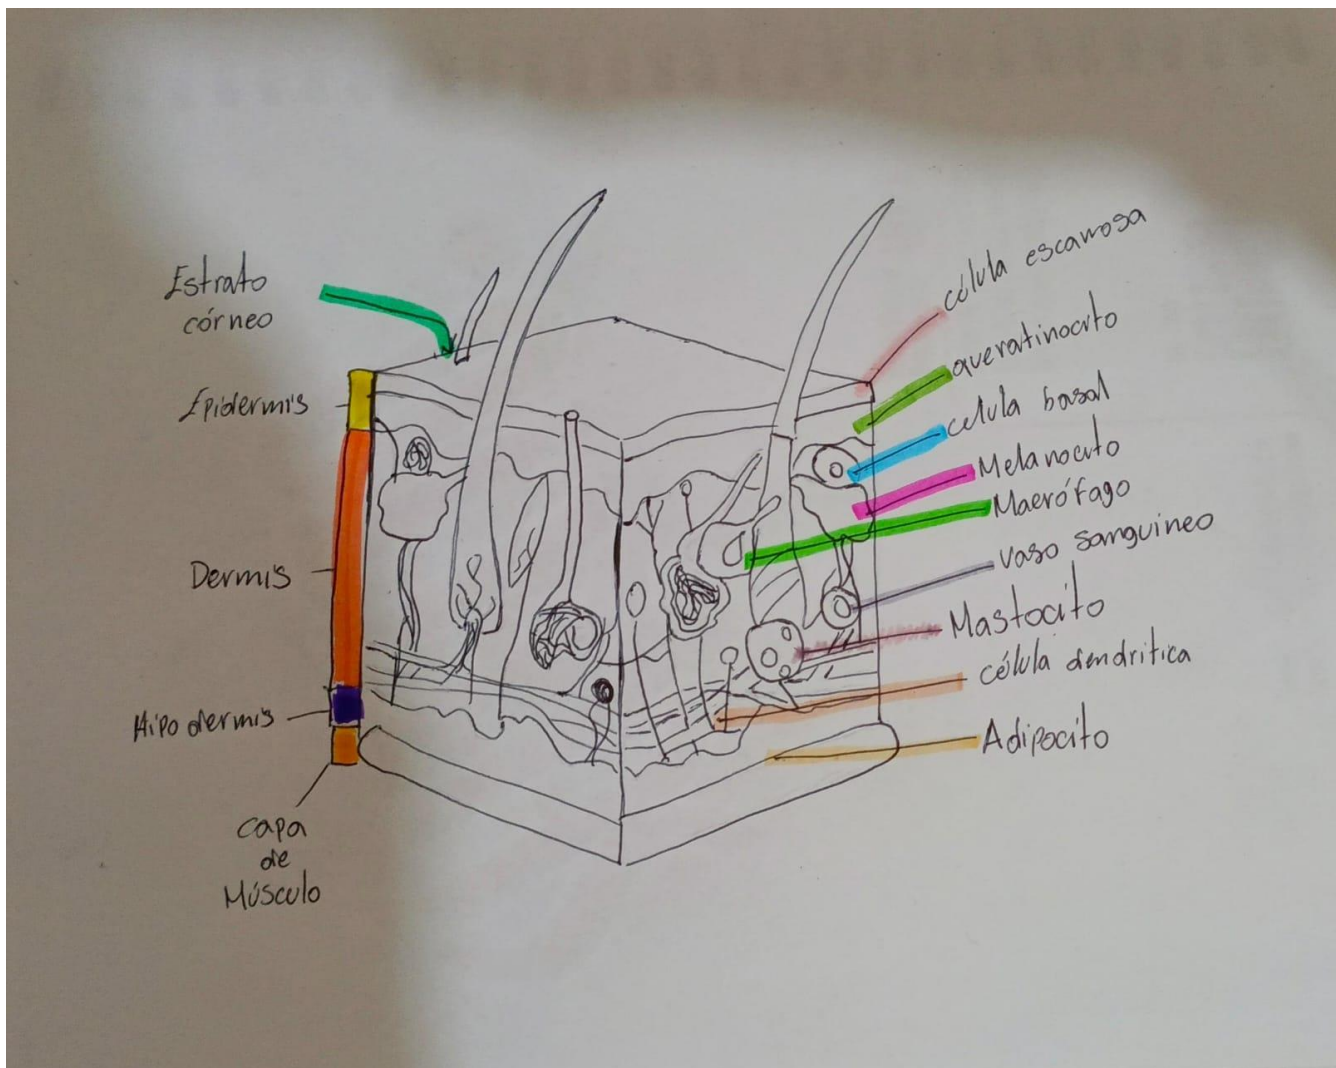 Estrato
córneo
Epidermis
Dermis
Hipodermis
Capa
de
Músculo
célula escamosa
queratinocito
celula basal
Melanocito
Macrófago
vaso sanguineo
Mastocito
célula dendritica
Adipocito